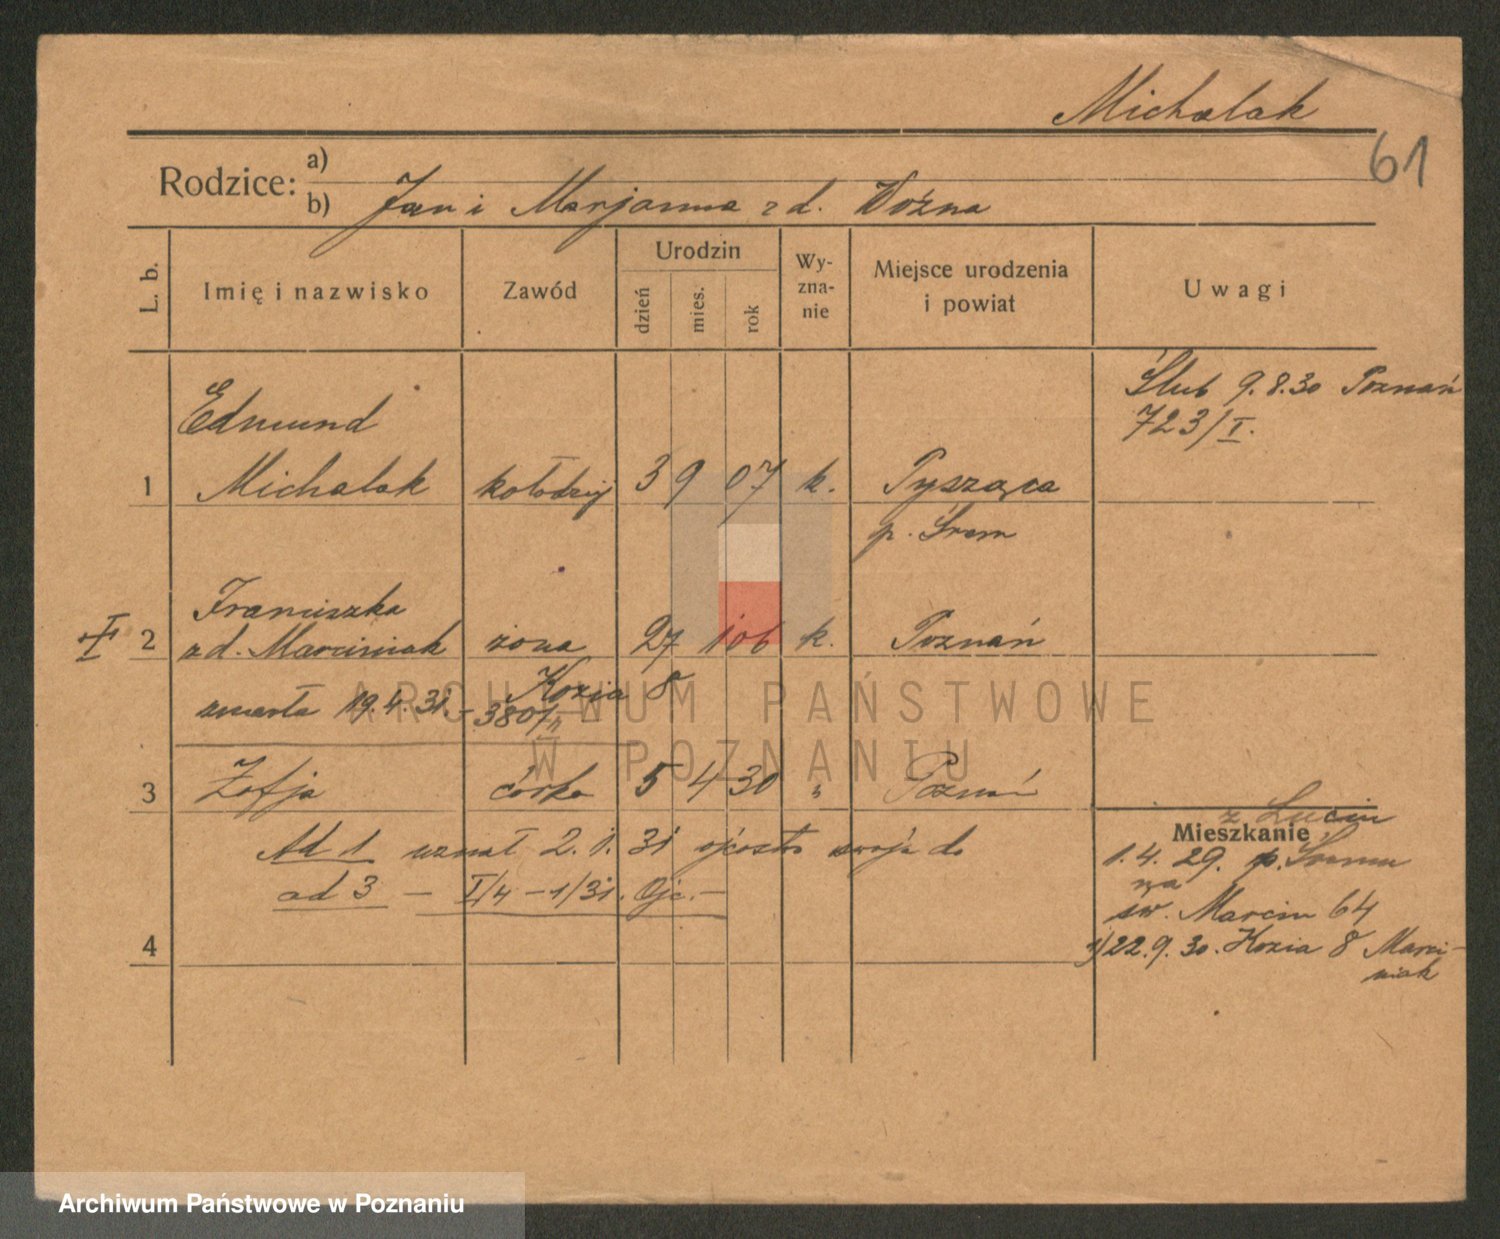 Michalak
61
Rodzice: a)
b) Jan i Marjanna z d. Woźna
L. b.
Imię i nazwisko
Zawód
Urodzin
dzień
mies.
rok
Wy-
zna-
nie
Miejsce urodzenia
i powiat
Uwagi
Ślub 9.8.30 Poznań
723/I.
Edmund
1 Michalak kołodziej 3 9 07 k. Pysząca
p. Śrem
Franciszka
2 z d. Marciniak żona 27 1 06 k. Poznań
Kozia 8
zmarła 19.4.31. - 380/II
3 Zofja córka 5 4 30 " Poznań
Ad 1 uznał 2.1.31 ojcostwo swoje do
ad 3 — I/4 - 1/31. Ojc. —
4
z Lucin
Mieszkanie
1.4.29. p. Śrem
na
św. Marcin 64
1/22.9.30. Kozia 8 Marci-
niak
ARCHIWUM PAŃSTWOWE
W POZNANIU
Archiwum Państwowe w Poznaniu